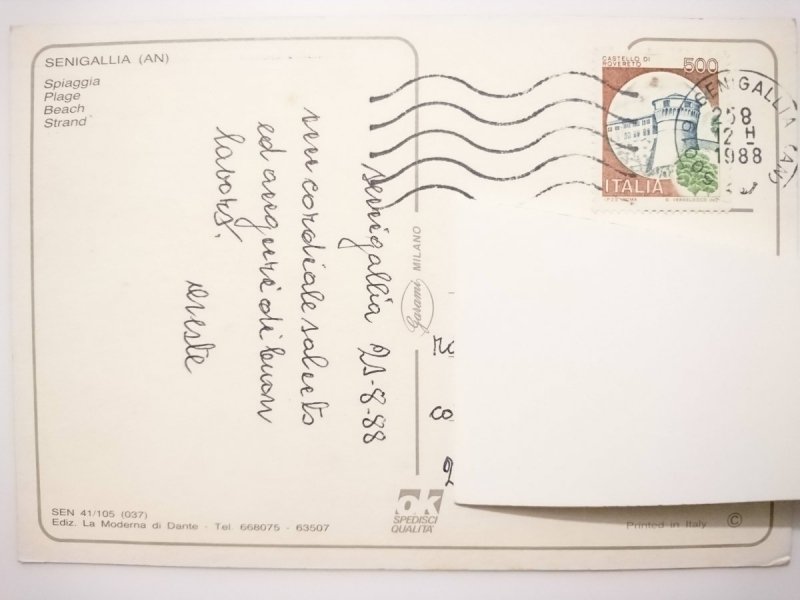 SENIGALLIA (AN)
Spiaggia
Plage
Beach
Strand
senigallia 25-8-88
un cordiale saluto
ed auguri di buon
lavoro.
oreste
Garami MILANO
CASTELLO DI
ROVERETO
500
ITALIA
SENIGALLIA (AN)
258
12 H
1988
co
ok
SPEDISCI
QUALITÀ
SEN 41/105 (037)
Ediz. La Moderna di Dante - Tel. 668075 - 63507
Printed in Italy ©